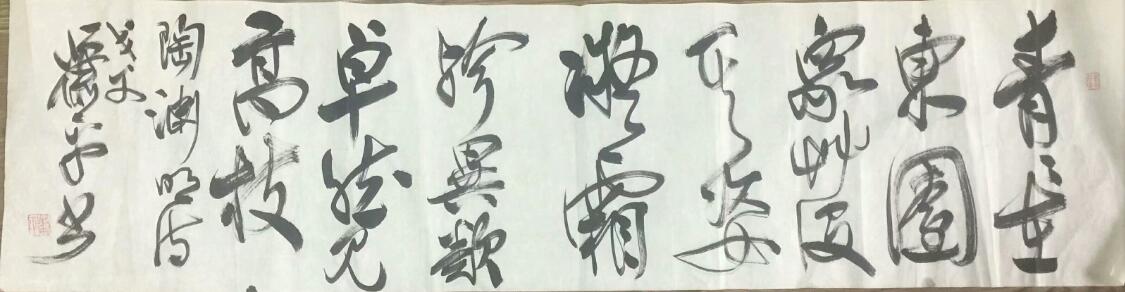 青々在
東園
眾艸沒
其姿
凝霜
殄異類
卓然見
高枝
陶淵明詩
書